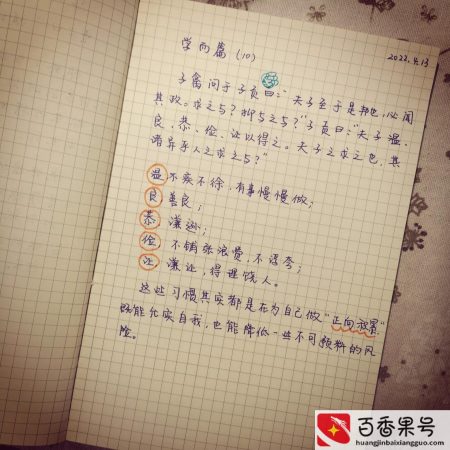 学而篇（10）
2022.4.13
子禽问于子贡曰：“夫子至于是邦也，必闻
其政。求之与？抑与之与？”子贡曰：“夫子温、
良、恭、俭、让以得之。夫子之求之也，其
诸异乎人之求之与？”
温 不疾不徐，有事慢慢做；
良 善良；
恭 谦逊；
俭 不铺张浪费，不浮夸；
让 谦让，得理饶人。
这些习惯其实都是在为自己做“正向
既能优实自我，也能降低一些不可预料的风
险。
百香果号
huangjinbaixiangguo.com